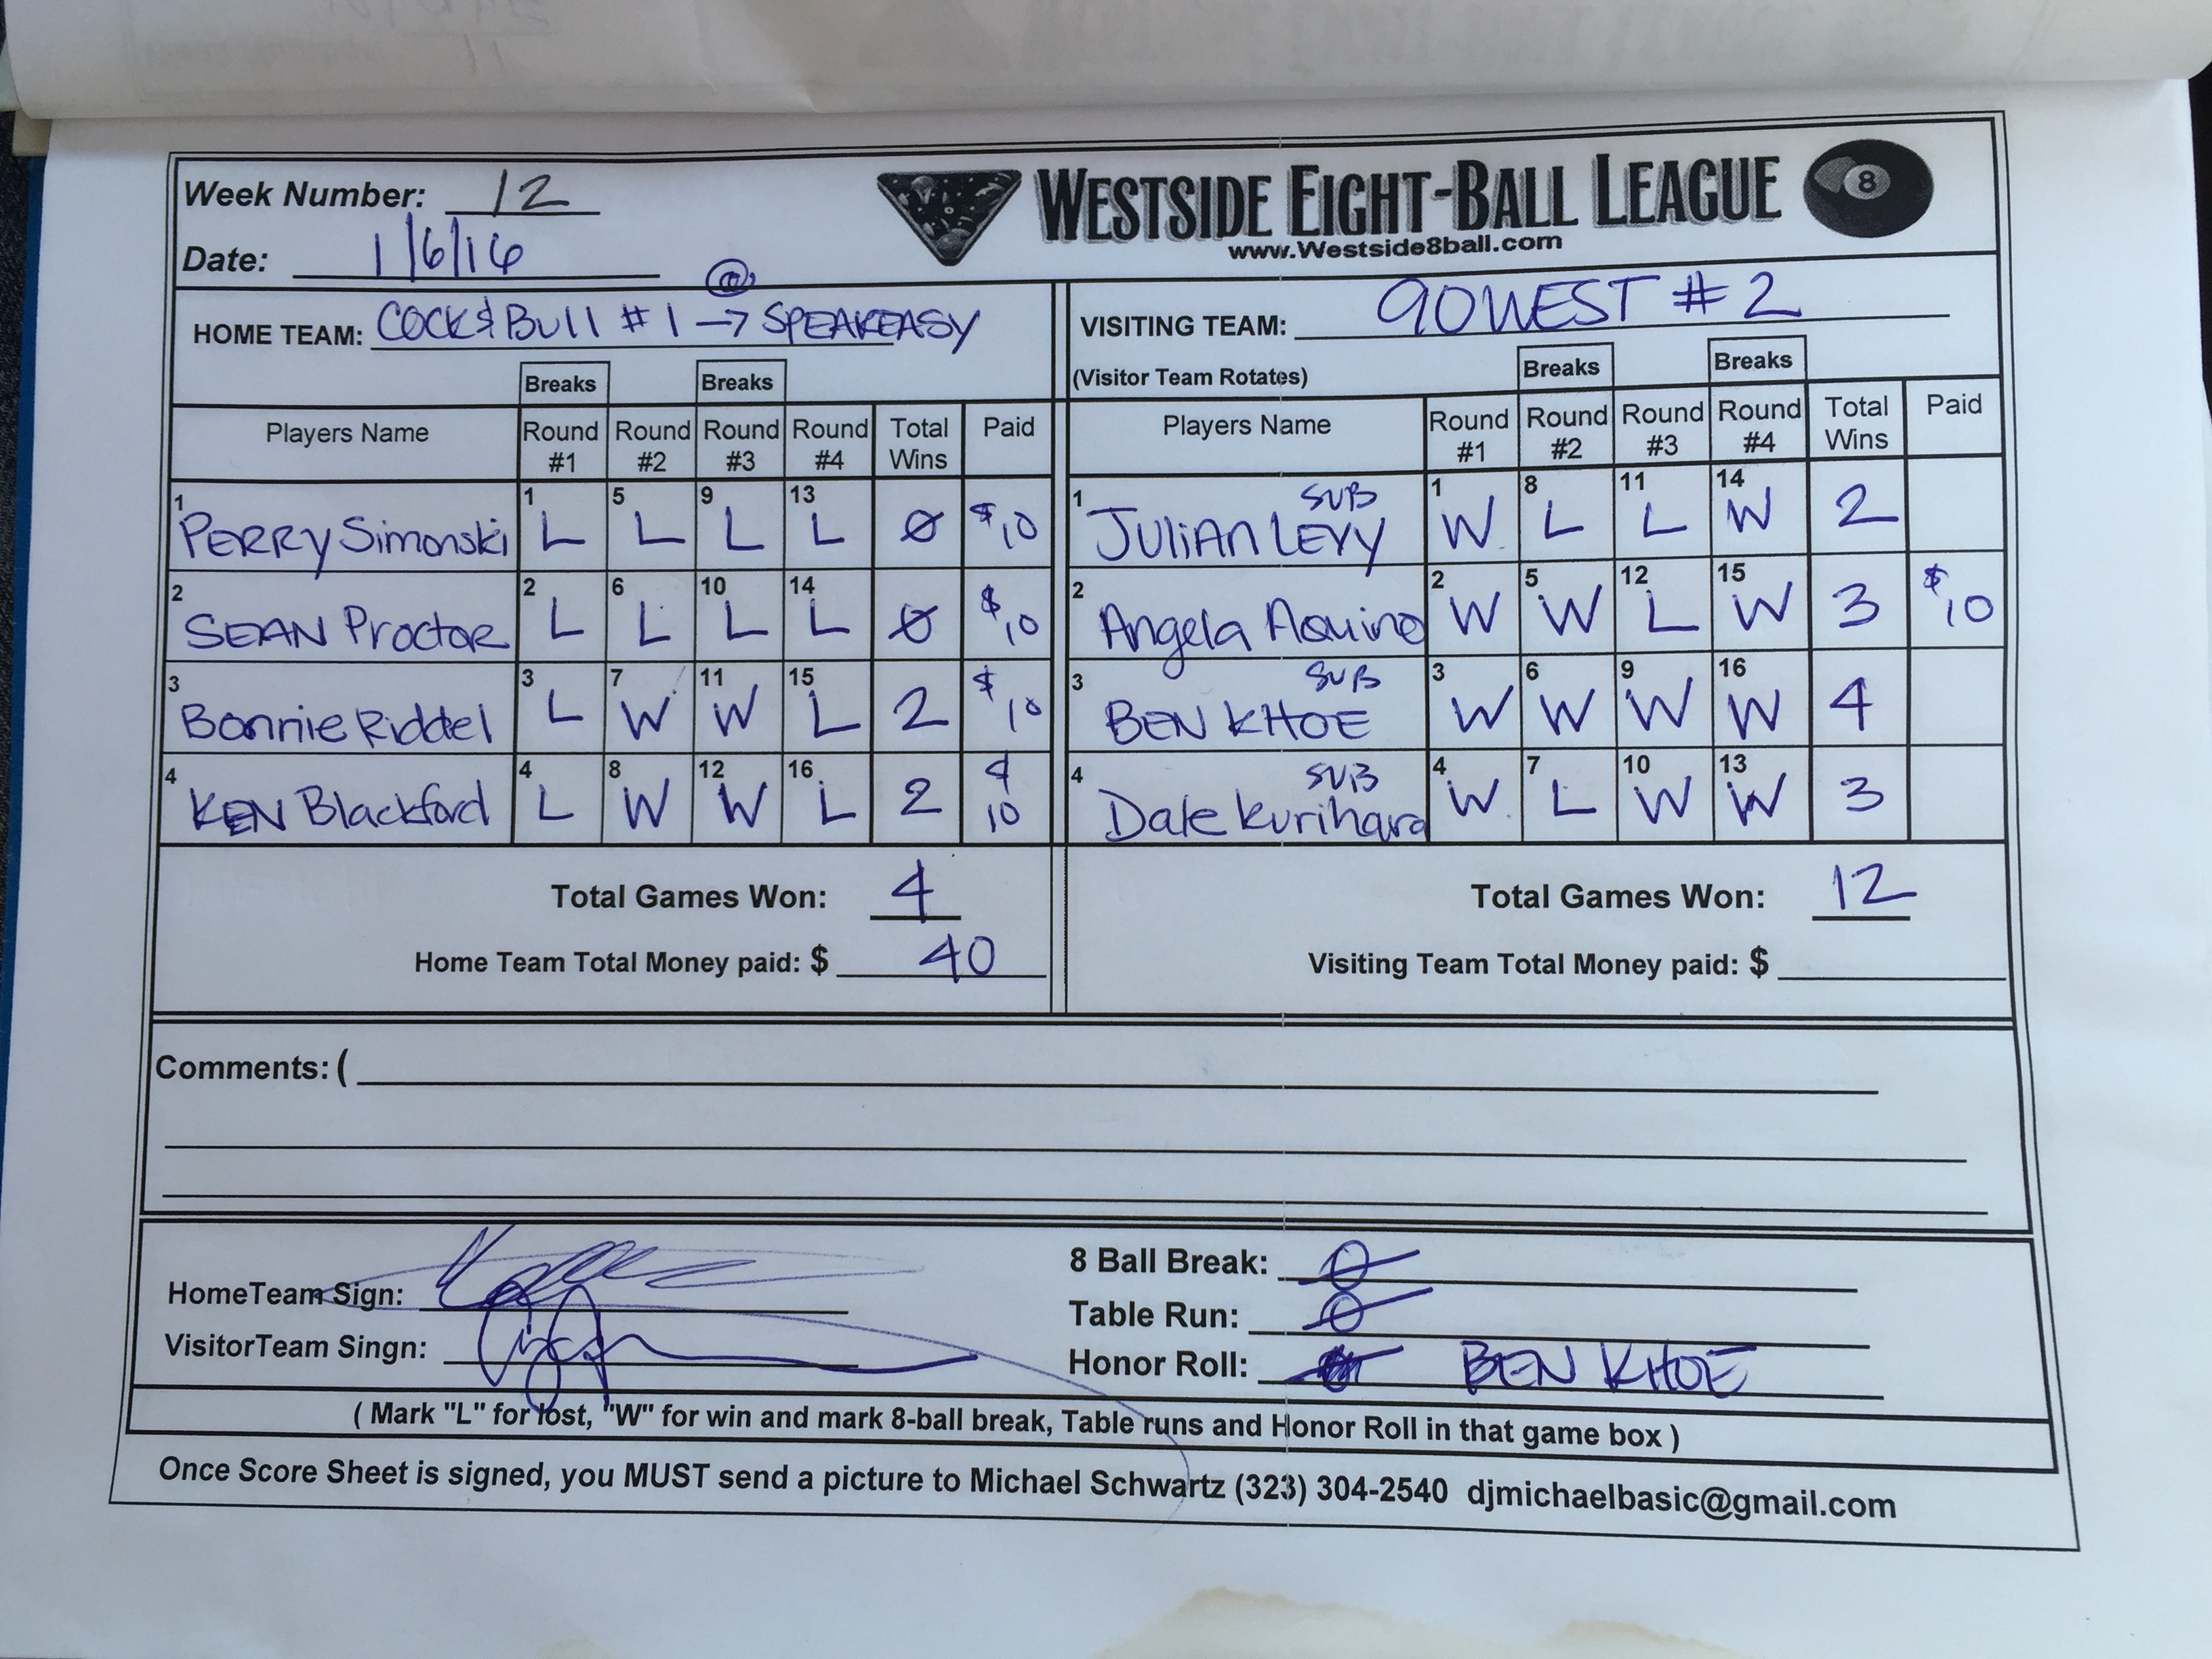 Week Number: 12
Date: 1/6/16
WESTSIDE EIGHT-BALL LEAGUE 8
www.Westside8ball.com
@
HOME TEAM: COCK & BULL #1 → SPEAKEASY
VISITING TEAM: 90 WEST #2
(Visitor Team Rotates)
Breaks Breaks Breaks Breaks
Players Name Round #1 Round #2 Round #3 Round #4 Total Wins Paid
1 PERRY Simonski 1 L 5 L 9 L 13 L 0 $10
2 SEAN Proctor 2 L 6 L 10 L 14 L 0 $10
3 Bonnie Riddel 3 L 7 W 11 W 15 L 2 $10
4 KEN Blackford 4 L 8 W 12 W 16 L 2 $10
Total Games Won: 4
Home Team Total Money paid: $ 40
Players Name Round #1 Round #2 Round #3 Round #4 Total Wins Paid
1 JULIAN LEVY SUB 1 W 8 L 11 L 14 W 2
2 Angela Aquino 2 W 5 W 12 L 15 W 3 $10
3 BEN KHOE SUB 3 W 6 W 9 W 16 W 4
4 Dale Kurihara SUB 4 W 7 L 10 W 13 W 3
Total Games Won: 12
Visiting Team Total Money paid: $
Comments: (
HomeTeam Sign:
VisitorTeam Singn:
8 Ball Break: 0
Table Run: 0
Honor Roll: BEN KHOE
( Mark "L" for lost, "W" for win and mark 8-ball break, Table runs and Honor Roll in that game box )
Once Score Sheet is signed, you MUST send a picture to Michael Schwartz (323) 304-2540 djmichaelbasic@gmail.com